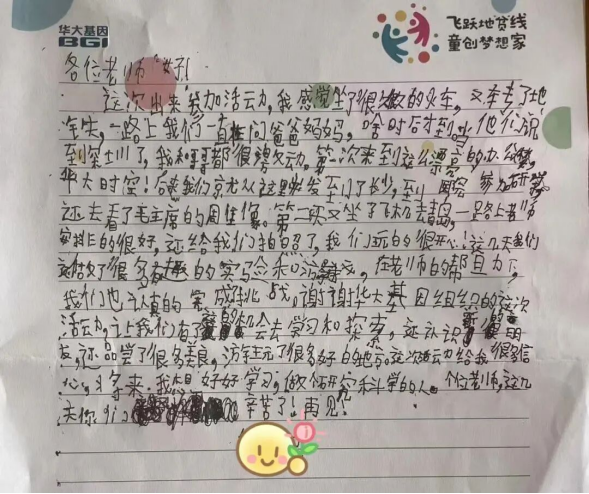 华大基因
BGI
飞跃地贫线
童创梦想家
各位老师好!
这次出来参加活动,我感觉坐了很久的火车,又车专了地
车失,一路上我们一直在问爸爸妈妈,啥时后才到,他们说
到深圳了,我和哥哥都很激动,第一次来到这么漂亮的办公楼,
华大时空!我们京尤从这里出发到了长沙,到参加研学
还去看了毛主席的周隹像。第二天又坐了飞机去青岛,一路上老师
安排的很好,还给我们拍照了,我们玩的很开心!这几天我们
做了很多有趣的实马佥和游戏,在老师的帮助下,
我们也认真的完成挑战。谢谢华大基因组织的这次
活动,让我们有了机会去学习和探索,还认识朋
友,还品尝了很多美食,游玩了很多好的地方。这次活动给我很多信
心,未来,我想好好学习,做个研究科学的人。个位老师,这几
天你们辛苦了!再见!